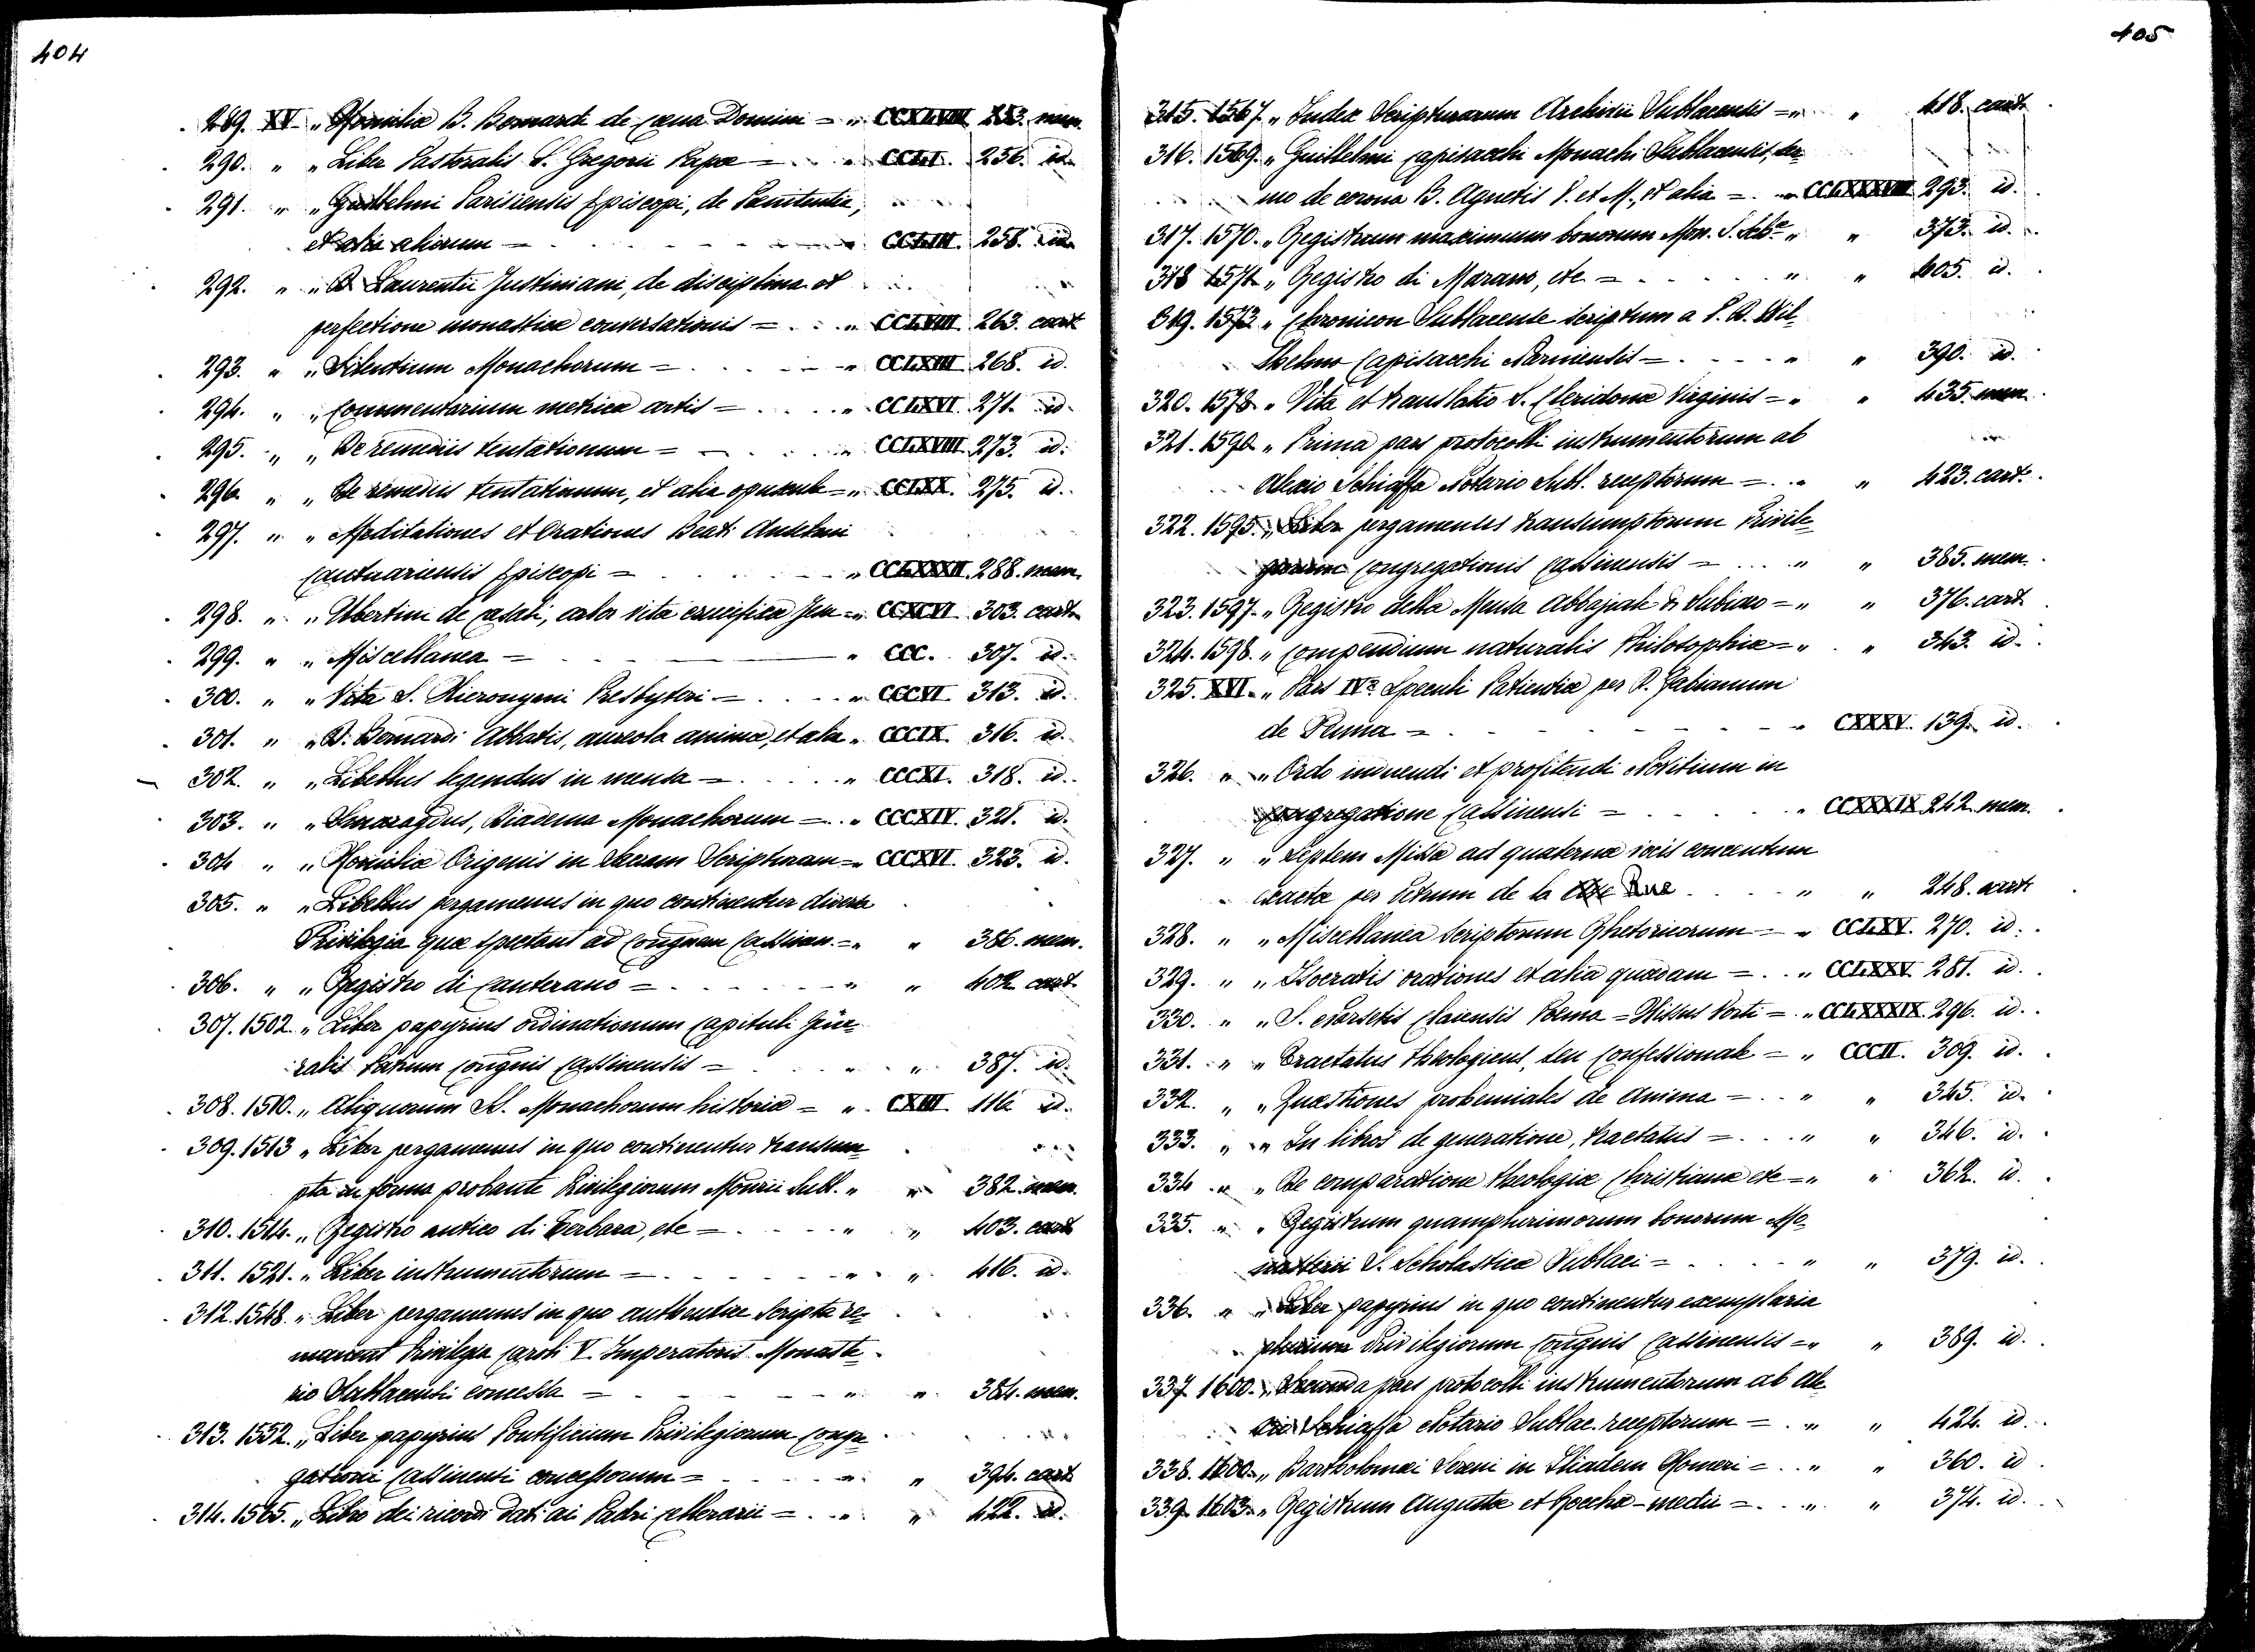 404
289. XV. „ Homiliæ B. Bernardi de cæna Domini = „ CCXLVIII 253. mem.
290. „ „ Liber Pastoralis S. Gregorii Papæ = „ CCLI. 256. id.
291. „ „ Guillelmi Parisiensis Episcopi, de Pænitentia,
et alia aliorum = „ CCLIII. 258. id.
292. „ „ B. Laurentii Justiniani, de disciplina et
perfectione monasticæ conversationis = „ CCLVIII. 263. cart
293. „ „ Silentium Monachorum = „ CCLXIII 268. id.
294. „ „ Commentarium metricæ artis = „ CCLXVI. 271. id.
295. „ „ De remediis tentationum = „ CCLXVIII 273. id.
296. „ „ De remediis tentationum, et alia opuscula = „ CCLXX. 275. id.
297. „ „ Meditationes et Orationes Beati Anselmi
Cantuariensis Episcopi = „ CCLXXXII. 288. mem.
298. „ „ Ubertini de Casali, arbor vitæ crucifixæ Jesu = „ CCXCVI 303. cart.
299. „ „ Miscellanea = „ CCC. 307. id.
300. „ „ Vita S. Hieronymi Presbyteri = „ CCCVI 313. id.
301. „ „ B. Bernardi Abbatis, aureola animæ, et alia „ CCCIX. 316. id.
302. „ „ Libellus legendus in mensa = „ CCCXI. 318. id.
303. „ „ Smaragdus, Diadema Monachorum = „ CCCXIV. 321. id.
304 „ „ Homiliæ Origenis in Sacram Scripturam = „ CCCXVI. 323. id.
305. „ „ Libellus pergamenus in quo continentur diversa
Privilegia quæ spectant ad Congnem Cassinen. = „ „ 386. mem.
306. „ „ Registro di Canterano = „ „ 402. cart.
307. 1502. „ Liber papyrius ordinationum Capituli Gñe-
ralis Patrum Congnis Cassinensis = „ „ 387. id.
308. 1510. „ Aliquorum SS. Monachorum historiæ = „ CXIII 116 id.
309. 1513 „ Liber pergamenus in quo continentur transum-
pta in forma probante Privilegiorum Monrii Subl. „ „ 382. mem.
310. 1514. „ Registro antico di Cerbara, etc = „ „ 403. cart
311. 1521. „ Liber instrumentorum = „ „ 416. id.
312. 1548. „ Liber pergamenus in quo authentice scripta re-
manent Privilegia Caroli V. Imperatoris Monaste-
rio Sublacensi concessa = „ „ 384. mem.
313. 1552. „ Liber papyrius Pontificium Privilegiorum Congre-
gationi Cassinensi concessorum = „ „ 394. cart
314. 1565. „ Libro dei ricordi dati ai Padri Cellerarii = „ „ 422. id.
405
315. 1567. „ Index Scripturarum Archivii Sublacensis = „ „ 418. cart.
316. 1569. „ Guillelmi Capisacchi Monachi Sublacensis, ser-
mo de corona B. Agnetis V. et M., et alia = „ CCLXXXVIII 293. id.
317. 1570. „ Registrum maximum bonorum Mon. S. Schæ „ „ 373. id.
318 1571. „ Registro di Marano, etc = „ „ 405. id.
319. 1573 „ Chronicon Sublacense scriptum a P. D. Wil-
lhelmo Capisacchi Narniensis = „ „ 390. id.
320. 1578 „ Vita et translatio S. Cleridonæ Virginis = „ „ 435. mem.
321. 1590 „ Prima pars protocolli instrumentorum ab
Alexio Schiaffa Notario Subl. receptorum = „ „ 423. cart.
322. 1595. „ Liber pergamenus transumptorum Privile-
giorum Congregationis Cassinensis = „ „ 385. mem.
323. 1597. „ Registro della Mensa Abbaziale di Subiaco = „ „ 376. cart.
324. 1598. „ Compendium naturalis Philosophiæ = „ „ 343. id.
325. XVI. „ Pars IVa Speculi Patientiæ per D. Gabianum
de Penna = „ CXXXV. 139. id.
326. „ „ Ordo induendi et profitendi Novitium in
Congregatione Cassinensi = „ CCXXXIX 242. mem.
327. „ „ Septem Missæ ad quaternæ vocis concentum
exactæ per Petrum de la Rue „ „ 248. cart.
328. „ „ Miscellanea scriptorum Rhetoricorum = „ CCLXV. 270. id.
329. „ „ Isocratis orationes et alia quædam = „ CCLXXV. 281. id.
330. „ „ S. Narsetis Claiensis Poema = Missus Porti = „ CCLXXXIX. 296. id.
331. „ „ Tractatus theologicus, seu Confessionale = „ CCCII. 309. id.
332. „ „ Quæstiones prohemiales de Anima = „ „ 345. id.
333. „ „ In libros de generatione, tractatus = „ „ 346. id.
334 „ „ De comparatione theologiæ Christianæ etc = „ „ 362. id.
335. „ „ Registrum quamplurimorum bonorum Mo-
nasterii S. Scholasticæ Sublaci = „ „ 379. id.
336. „ „ Liber papyrius in quo continentur exemplaria
plurium Privilegiorum Congnis Cassinensis = „ „ 389. id.
337 1600. „ Secunda pars protocolli instrumentorum ab Ale-
xio Schiaffa Notario Sublac. receptorum = „ „ 424. id.
338. 1600. „ Bartholomæi Sereni in Iliadem Homeri = „ „ 360. id.
339. 1603. „ Registrum Augustæ et Roccha-medii = „ „ 374. id.